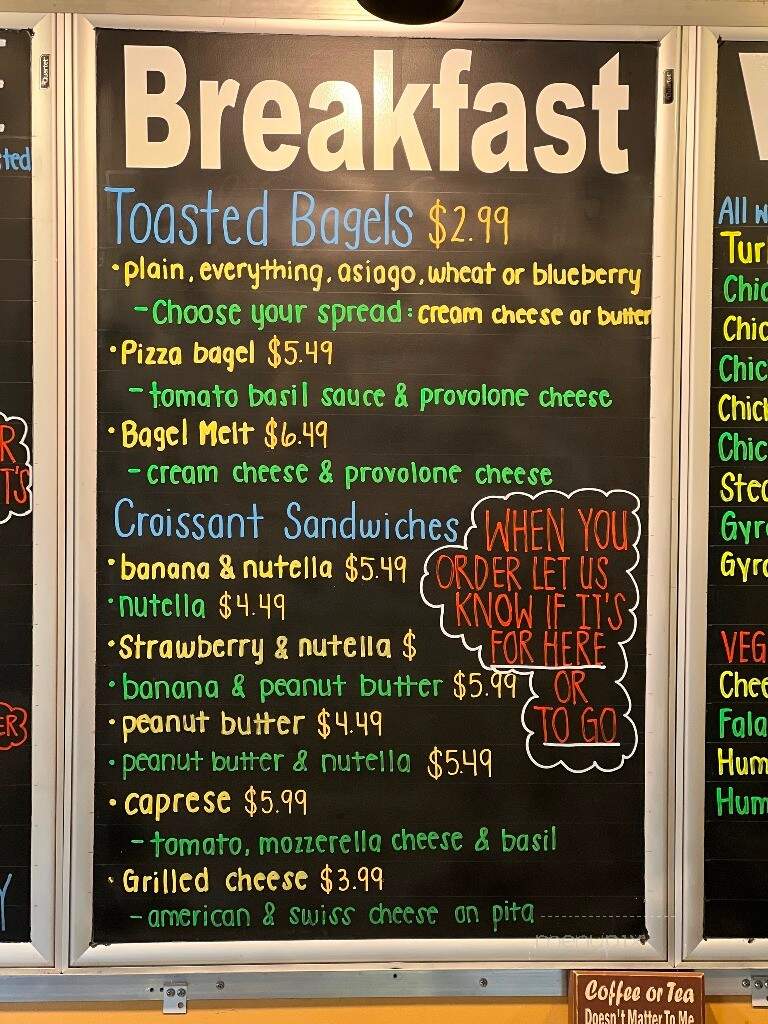 Breakfast
Toasted Bagels $2.99
·plain, everything, asiago, wheat or blueberry
-Choose your spread: cream cheese or butter
·Pizza bagel $5.49
-tomato basil sauce & provolone cheese
·Bagel Melt $6.49
-cream cheese & provolone cheese
Croissant Sandwiches
·banana & nutella $5.49
·nutella $4.49
·Strawberry & nutella $
·banana & peanut butter $5.99
·peanut butter $4.49
·peanut butter & nutella $5.49
·caprese $5.99
-tomato, mozzerella cheese & basil
·Grilled cheese $3.99
-american & swiss cheese on pita
WHEN YOU
ORDER LET US
KNOW IF IT'S
FOR HERE
OR
TO GO
All w
Turk
Chic
Chic
Chic
Chick
Chic
Stea
Gyro
Gyro
VEG
Chee
Fala
Hum
Hum
Coffee or Tea
Doesn't Matter To Me